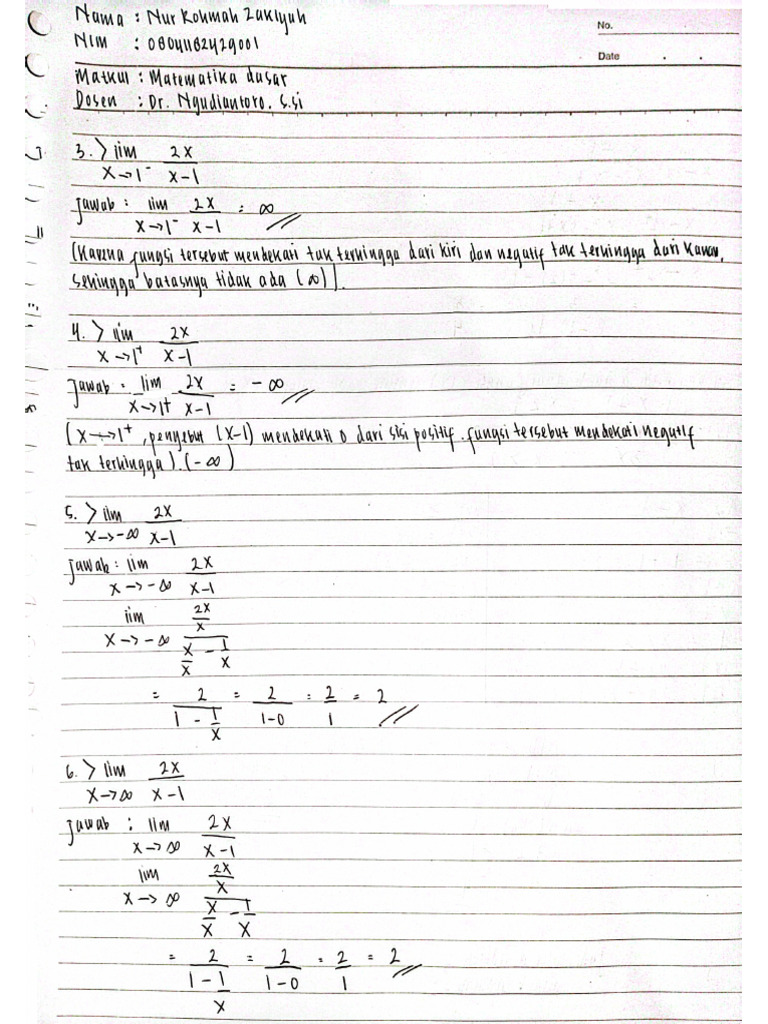 Nama : Nur Rohmah Zakiyah
No.
NIM : 08041182429001
Date
Matkul : Matematika dasar
Dosen : Dr. Ngudiantoro. S.Si
3.> lim 2x
x→1⁻ x-1
Jawab : lim 2x = ∞
x→1⁻ x-1
(Karena fungsi tersebut mendekati tak terhingga dari kiri dan negatif tak terhingga dari kanan,
sehingga batasnya tidak ada (∞)).
4.> lim 2x
x→1⁺ x-1
Jawab : lim 2x = -∞
x→1⁺ x-1
(x→1⁺, penyebut (x-1) mendekati 0 dari sisi positif. fungsi tersebut mendekati negatif
tak terhingga).(-∞)
5.> lim 2x
x→-∞ x-1
Jawab : lim 2x
x→-∞ x-1
lim 2x/x
x→-∞ x/x - 1/x
= 2/(1 - 1/x) = 2/(1-0) = 2/1 = 2
6.> lim 2x
x→∞ x-1
Jawab : lim 2x
x→∞ x-1
lim 2x/x
x→∞ x/x - 1/x
= 2/(1 - 1/x) = 2/(1-0) = 2/1 = 2